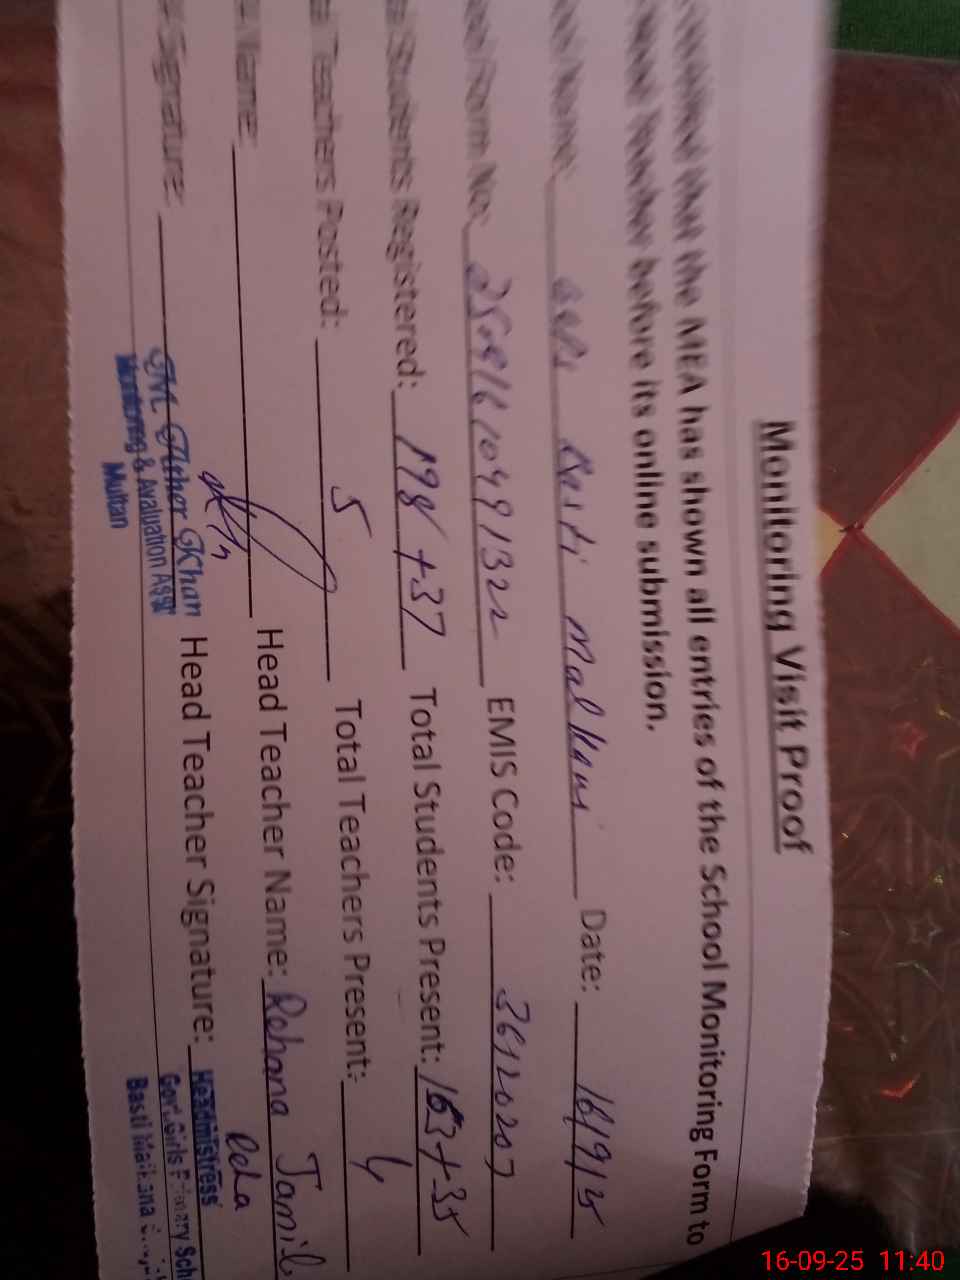 Monitoring Visit Proof
that the MEA has shown all entries of the School Monitoring Form to
before its online submission.
Name: GGPS Basti Malkani Date: 16/9/25
Form No: EMIS Code: 36120207
Students Registered: 198+37 Total Students Present: 163+35
Teachers Posted: 5 Total Teachers Present: 4
Name: Head Teacher Name: Rehana Jamil
Signature: Head Teacher Signature:
Khan
Monitoring & Avaluation Asst
Multan
Headmistress
Govt. Girls Primary Sch
Basti
16-09-25 11:40